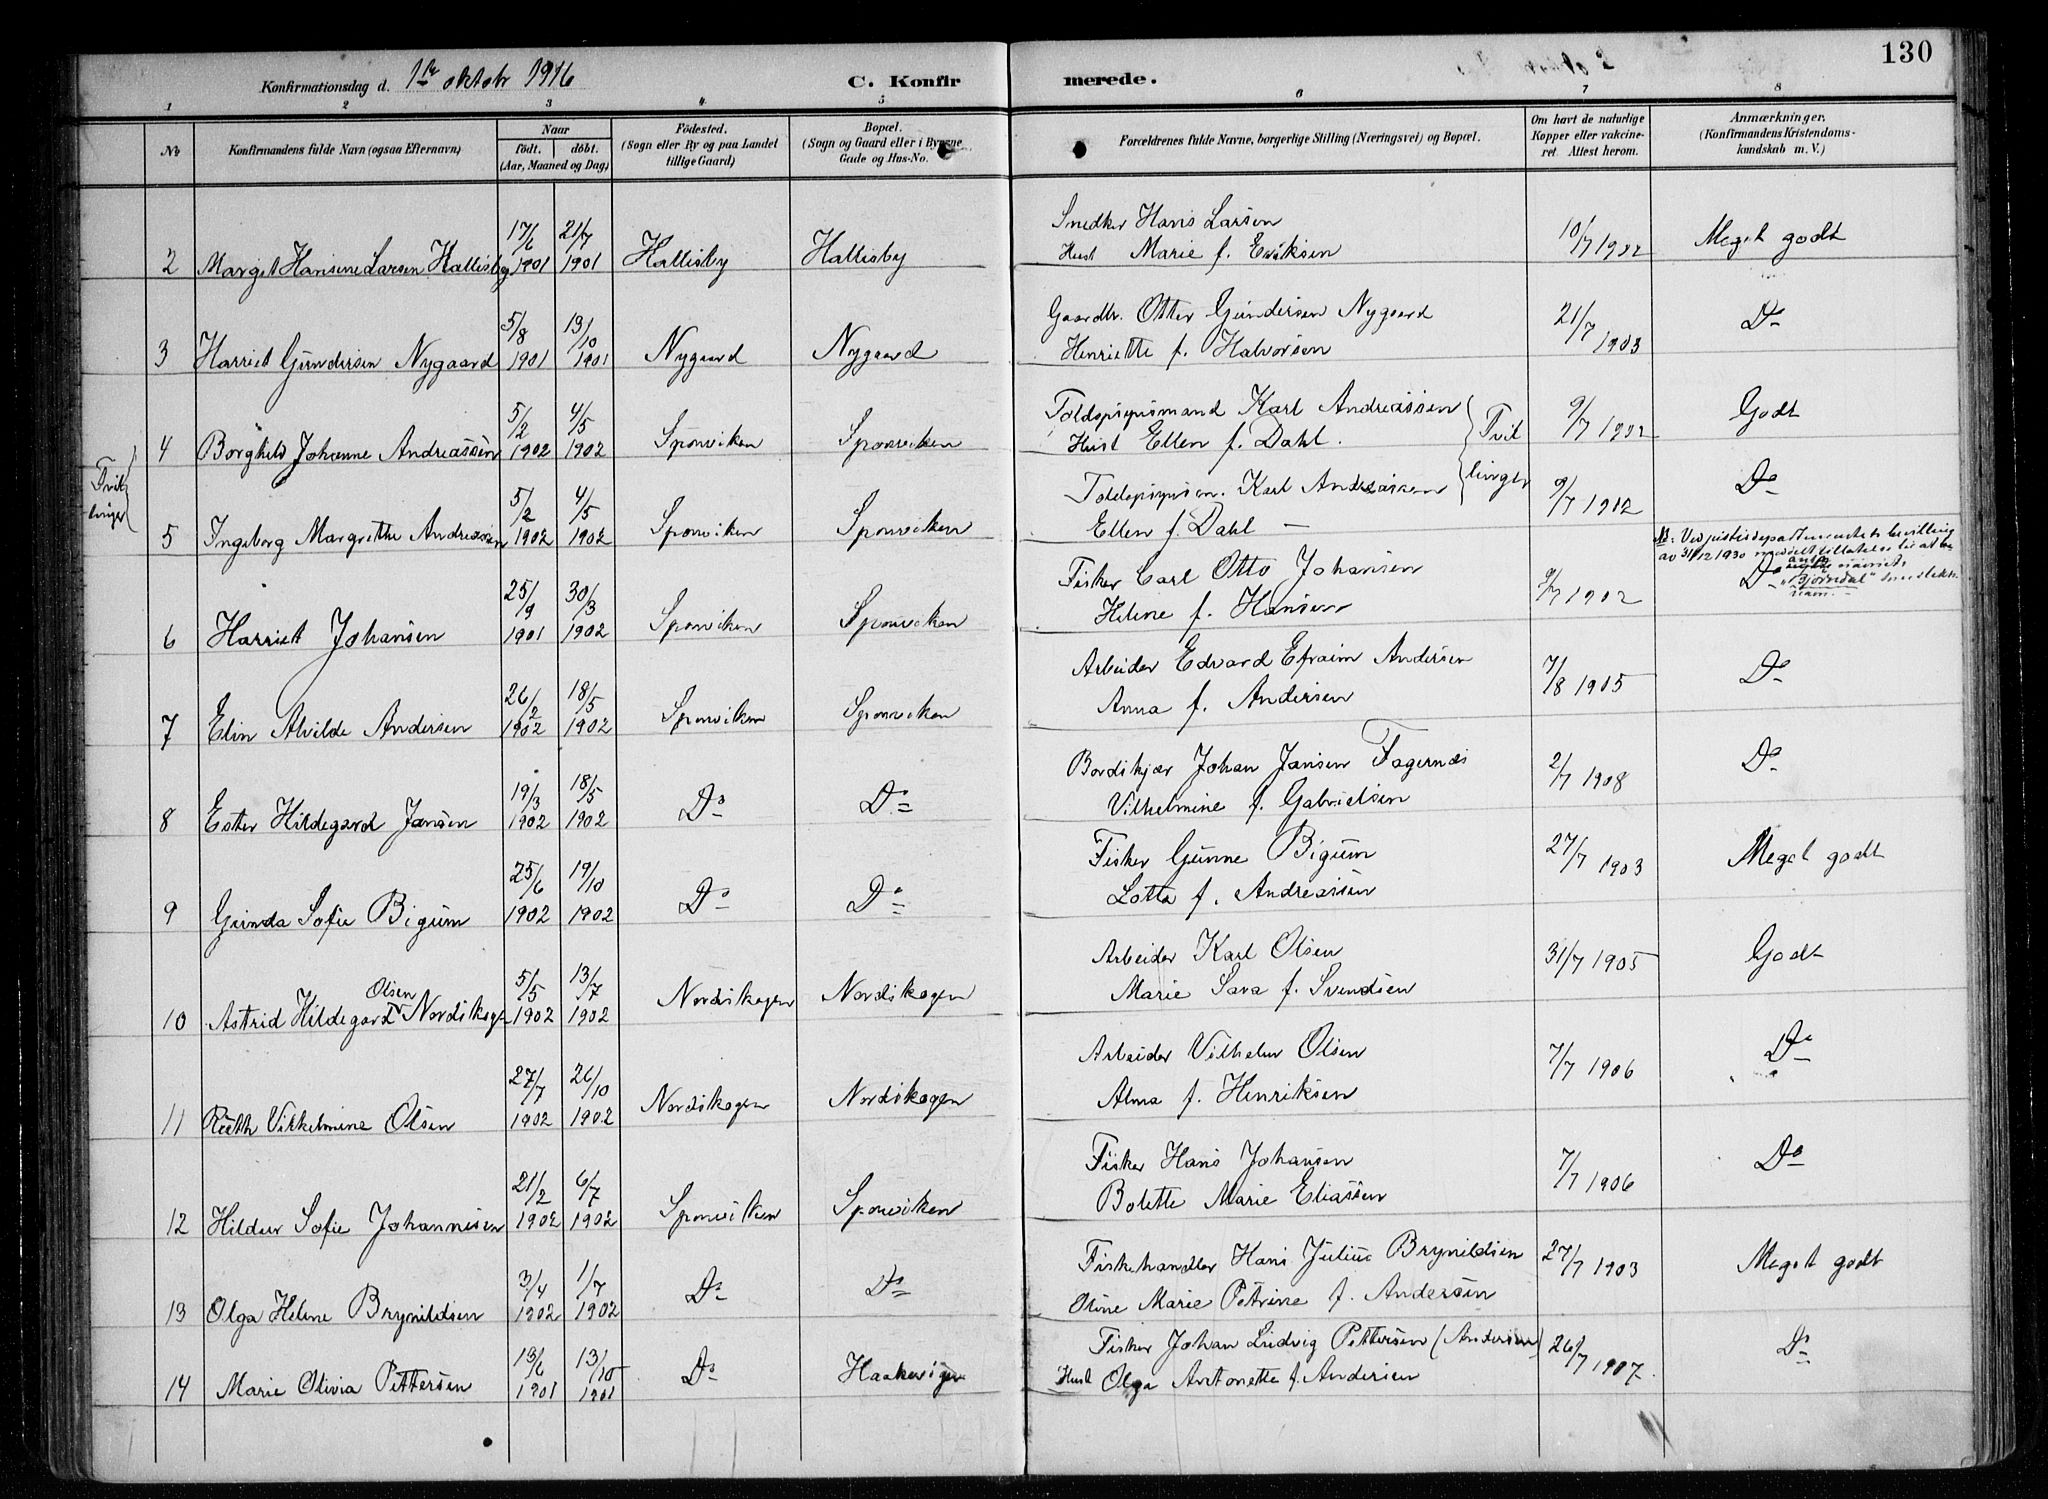 130
Konfirmationsdag d. 1ste oktobr 1916 C. Konfirmerede.
1 2 3 4 5 6 7 8
No
Konfirmandens fulde Navn (ogsaa Efternavn)
Naar
födt. döbt.
(Aar, Maaned og Dag)
Födested.
(Sogn eller By og paa Landet
tillige Gaard)
Bopæl.
(Sogn og Gaard eller i Byerne
Gade og Hus-No.
Forældrenes fulde Navne, borgerlige Stilling (Næringsvei) og Bopæl.
Om havt de naturlige
Kopper eller vakcine-
ret. Attest herom.
Anmærkninger.
(Konfirmandens Kristendoms-
kundskab m. V.)
17/6 21/7 Snedker Hans Larsen
2 Margit Hansine Larsen Hallisby 1901 1901 Hallisby Hallisby Hust Marie f. Eriksen 10/7 1902 Meget godt
5/8 13/10 Gaardbr. Otter Gundersen Nygaard
3 Harriet Gundersen Nygaard 1901 1901 Nygaard Nygaard Henriette f. Halvorsen 21/7 1903 Do
5/2 4/5 Karl Andreassen
4 Borghild Johanne Andreassen 1902 1902 Sponviken Sponviken Hust Ellen f. Dahl. Tvil 9/7 1902 Godt
Tvil
linger
5/2 4/5 Karl Andreassen linger
5 Ingeborg Margrethe Andreassen 1902 1902 Sponviken Sponviken Ellen f. Dahl — 9/7 1902 Do
NB: Ved justisdepartementets bevilling
av 31/12 1930 meddelt tillatelse til at
anta navnet
"Bjørndal" som slekts
navn.
25/9 30/3 Fisker Carl Otto Johansen
6 Harriet Johansen 1901 1902 Sponviken Sponviken Helene f. Hansen 9/7 1902 Do
26/2 18/5 Arbeider Edvard Efraim Andersen
7 Elin Alvilde Andersen 1902 1902 Sponviken Sponviken Anna f. Andersen 7/8 1905 Do
19/3 18/5 Bordskjær Johan Jansen Fagernæs
8 Ester Hildegard Jansen 1902 1902 Do Do Vilhelmine f. Gabrielsen 2/7 1908 Do
25/6 19/10 Fisker Gunne Bigum
9 Gunda Sofie Bigum 1902 1902 Do Do Lotta f. Andreassen 27/7 1903 Meget godt
5/5 13/7 Arbeider Karl Olsen
10 Astrid Hildegard Olsen Nordskogen 1902 1902 Nordskogen Nordskogen Marie Sara f. Svendsen 31/7 1905 Godt
27/7 26/10 Arbeider Vilhelm Olsen
11 Ruth Vilhelmine Olsen 1902 1902 Nordskogen Nordskogen Alma f. Henriksen 7/7 1906 Do
21/2 6/7 Fisker Hans Johansen
12 Hildur Sofie Johannesen 1902 1902 Sponviken Sponviken Bolette Marie Eliassen 7/7 1906 Do
3/4 1/7 Fiskehandler Hans Julius Brynildsen
13 Olga Helene Brynildsen 1902 1902 Do Do Oline Marie Petrine f. Andersen 27/7 1903 Meget godt
13/6 13/10 Fisker Johan Ludvig Pettersen (Andersen)
14 Marie Olivia Pettersen 1901 1901 Do Hust Olga Antonette f. Andersen 26/7 1907. Do